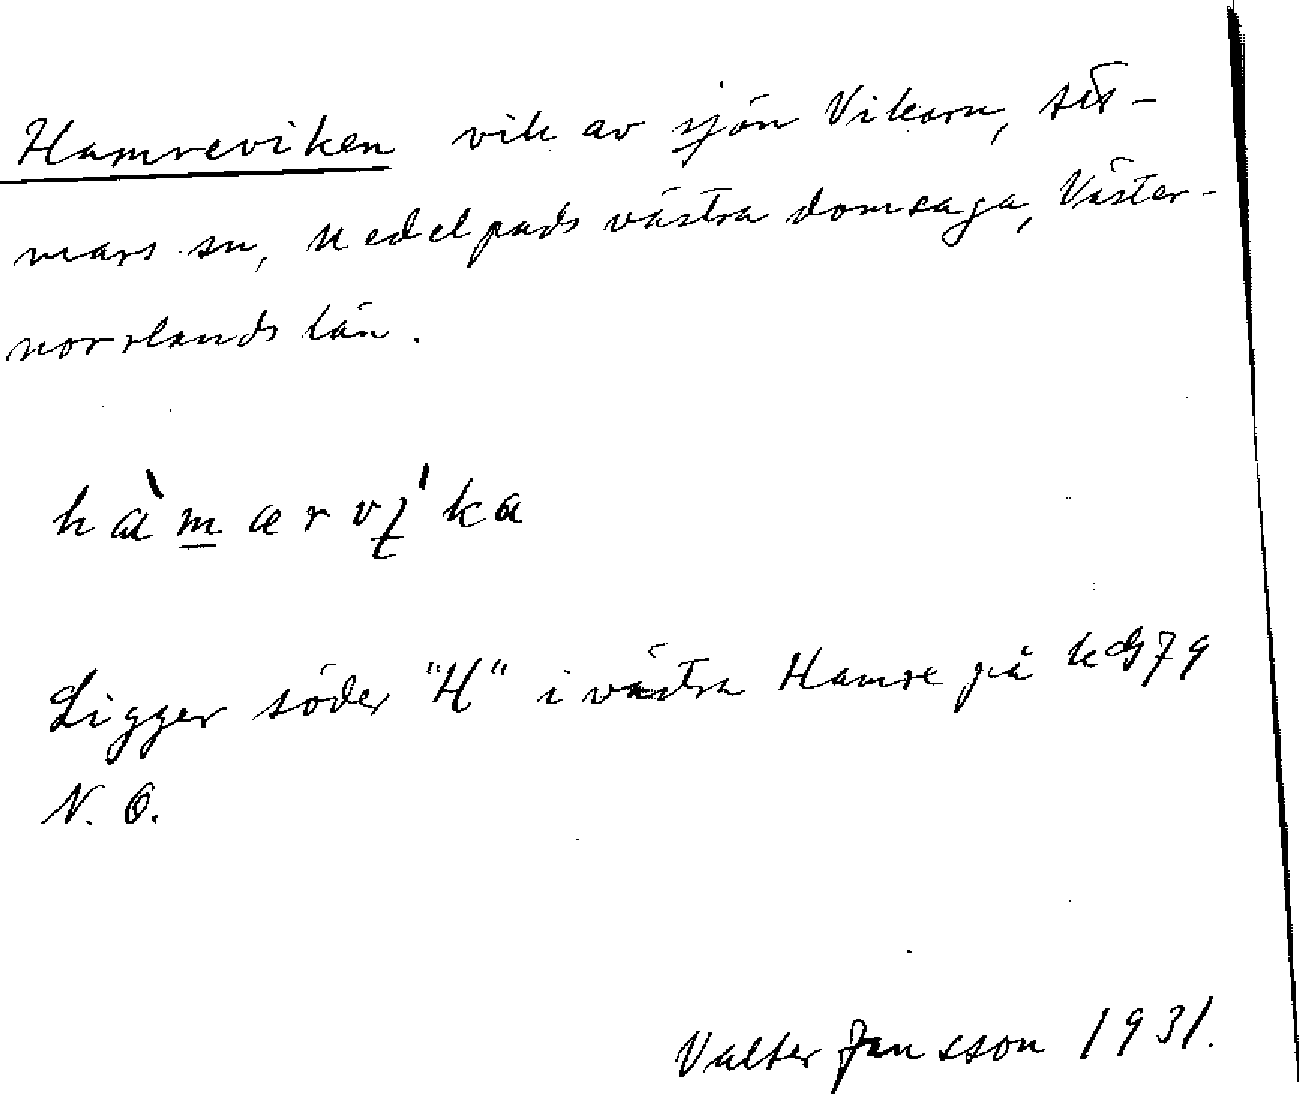 Hamreviken vik av sjön Vikarn, Sät-
mars sn, Medelpads västra domsaga, Väster-
norrlands län.
hàmarvi'ka
Ligger söder "H" i västra Hamre på
N. O.
Valter Jansson 1931.